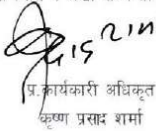 प्र. कार्यकारी अधिकृत
कृष्ण प्रसाद शर्मा